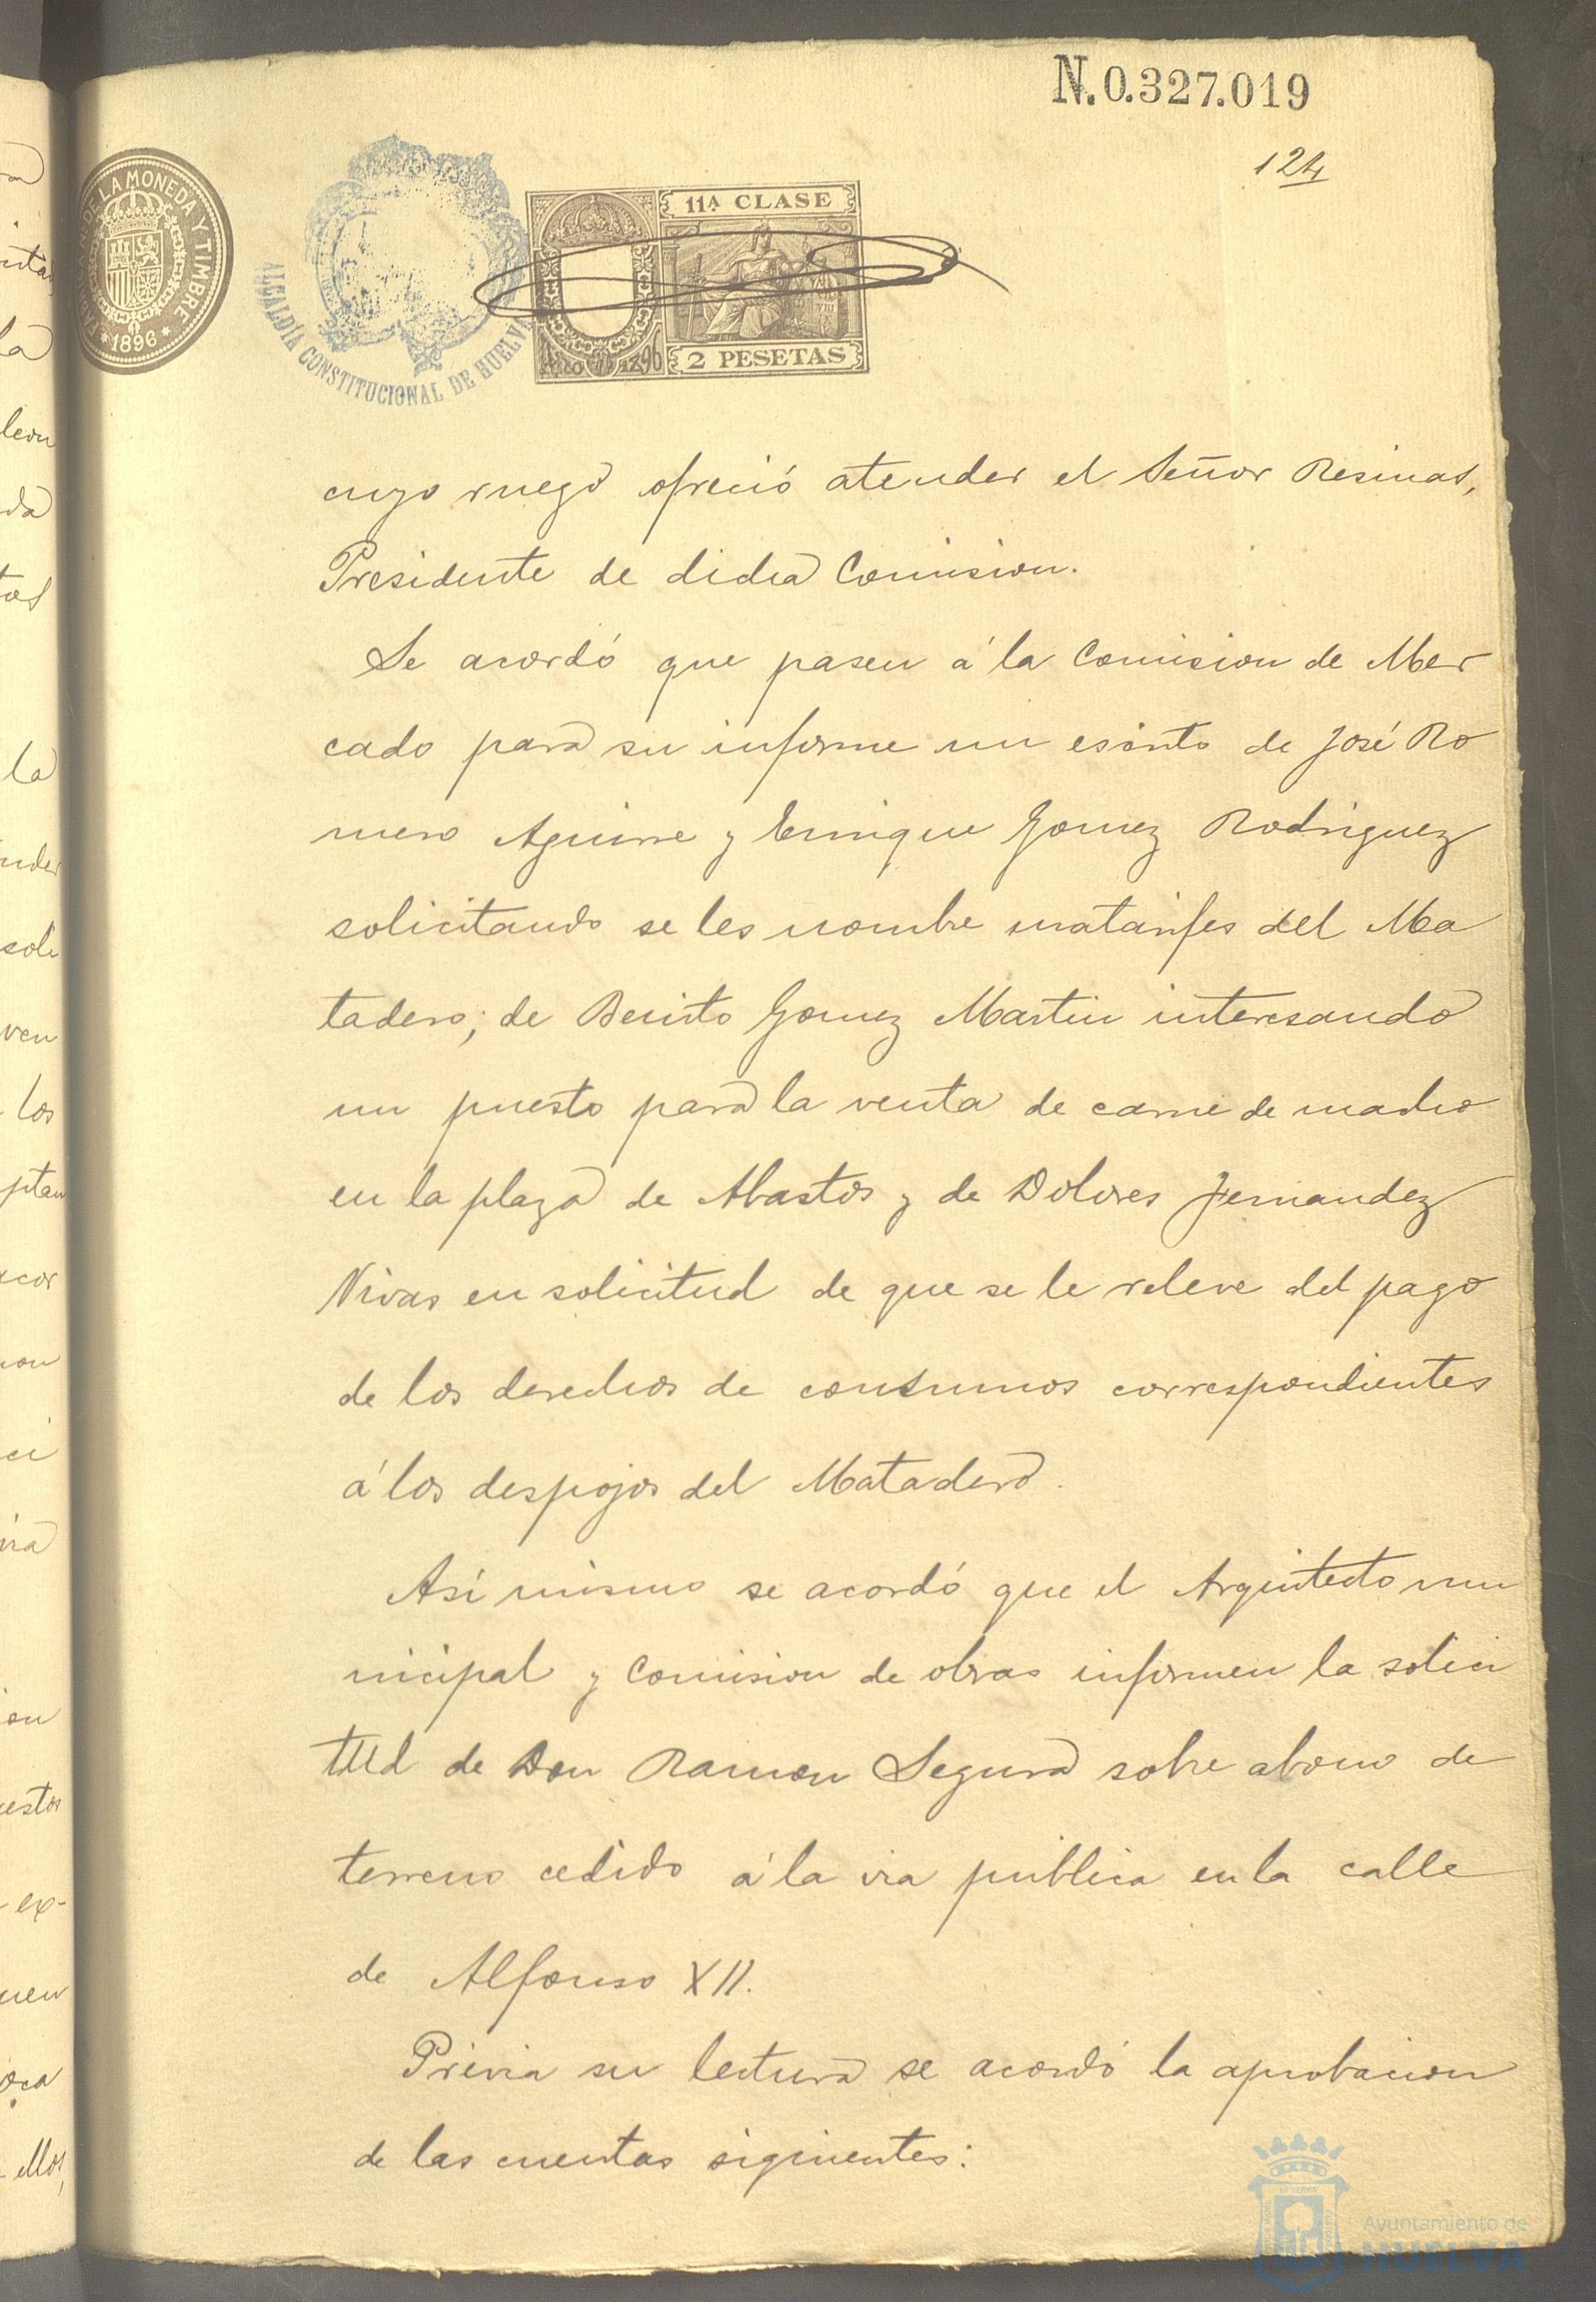 N.0.327.019
124
FABRICA N. DE LA MONEDA Y TIMBRE
*1896*
ALCALDÍA CONSTITUCIONAL DE HUELVA
11ª CLASE
2 PESETAS
1896
cuyo ruego ofreció atender el Señor Resinas,
Presidente de dicha Comision.
Se acordó que pasen á la Comision de Mer
cado para su informe un escrito de José Ro
mero Aguirre y Enrique Gomez Rodriguez
solicitando se les nombre matarifes del Ma
tadero; de Benito Gomez Martin interesando
un puesto para la venta de carne de macho
en la plaza de Abastos y de Dolores Fernandez
Nivas en solicitud de que se le releve del pago
de los derechos de consumos correspondientes
á los despojos del Matadero.
Asi mismo se acordó que el Arquitecto mu
nicipal y Comision de obras informen la solici
tud de Don Ramon Segura sobre abono de
terreno cedido á la via publica en la calle
de Alfonso XII.
Prévia su lectura se acordó la aprobacion
de las cuentas siguientes:
Ayuntamiento de
HUELVA